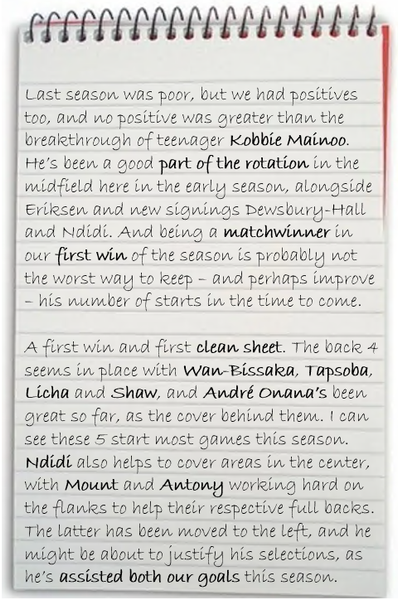 Last season was poor, but we had positives
too, and no positive was greater than the
breakthrough of teenager Kobbie Mainoo.
He's been a good part of the rotation in the
midfield here in the early season, alongside
Eriksen and new signings Dewsbury-Hall
and Ndidi. And being a matchwinner in
our first win of the season is probably not
the worst way to keep – and perhaps improve
– his number of starts in the time to come.
A first win and first clean sheet. The back 4
seems in place with Wan-Bissaka, Tapsoba,
Licha and Shaw, and André Onana's been
great so far, as the cover behind them. I can
see these 5 start most games this season.
Ndidi also helps to cover areas in the center,
with Mount and Antony working hard on
the flanks to help their respective full backs.
The latter has been moved to the left, and he
might be about to justify his selections, as
he's assisted both our goals this season.